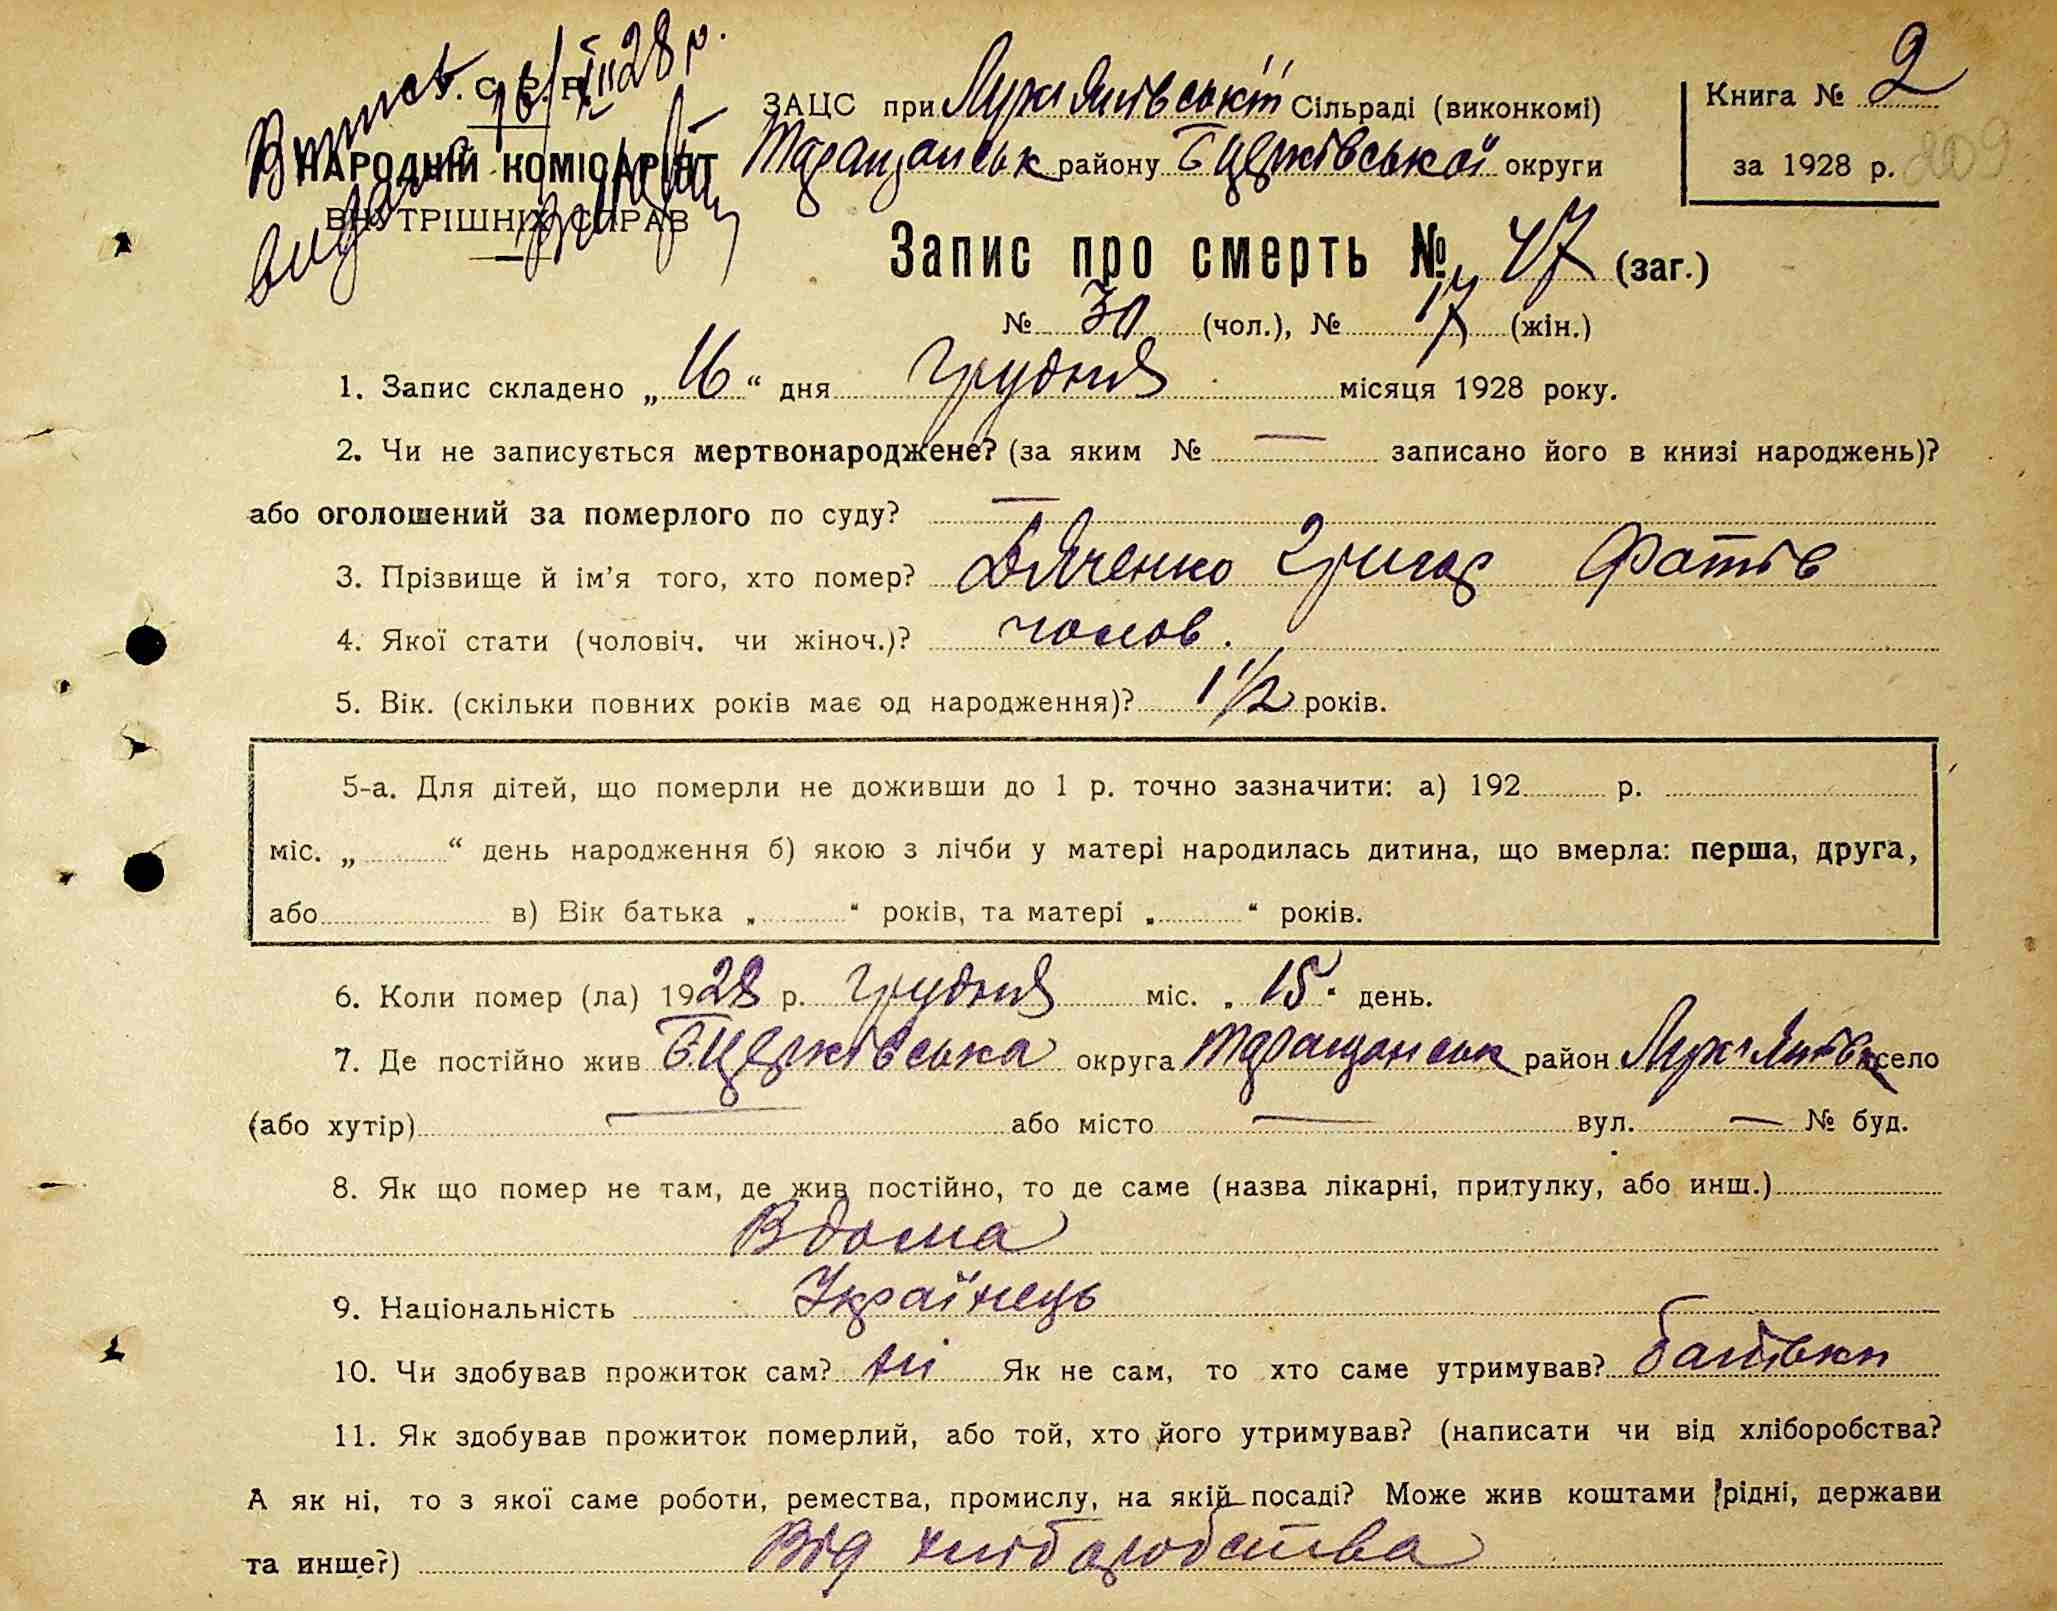 Випись видана 16/XII 28 р.
У. С. Р. Р.
НАРОДНІЙ КОМІСАРІЯТ
ВНУТРІШНИХ СПРАВ
ЗАЦС при Лукіянівській Сільраді (виконкомі)
Таращанськ району Б Церківської округи
Книга № 2
за 1928 р. 209
Запис про смерть № 47 (заг.)
№ 30 (чол.), № 17 (жін.)
1. Запис складено „16“ дня грудня місяця 1928 року.
2. Чи не записується мертвонароджене? (за яким № — записано його в книзі народжень)?
або оголошений за померлого по суду? —
3. Прізвище й ім’я того, хто помер? Дяченко Григор Фотів
4. Якої стати (чоловіч. чи жіноч.)? чолов.
5. Вік. (скільки повних років має од народження)? 1 1/2 років.
5-а. Для дітей, що померли не доживши до 1 р. точно зазначити: а) 192 р.
міс. „ “ день народження б) якою з лічби у матері народилась дитина, що вмерла: перша, друга,
або в) Вік батька „ “ років, та матері „ “ років.
6. Коли помер (ла) 1928 р. грудня міс. „15“ день.
7. Де постійно жив Б.Церківська округа Таращанськ район Лукіянівка село
(або хутір) — або місто — вул. — № буд.
8. Як що помер не там, де жив постійно, то де саме (назва лікарні, притулку, або инш.)
Вдома
9. Національність Українець
10. Чи здобував прожиток сам? ні Як не сам, то хто саме утримував? батьки
11. Як здобував прожиток померлий, або той, хто його утримував? (написати чи від хліборобства?
А як ні, то з якої саме роботи, ремества, промислу, на якій посаді? Може жив коштами рідні, держави
та инше?) Від хліборобства